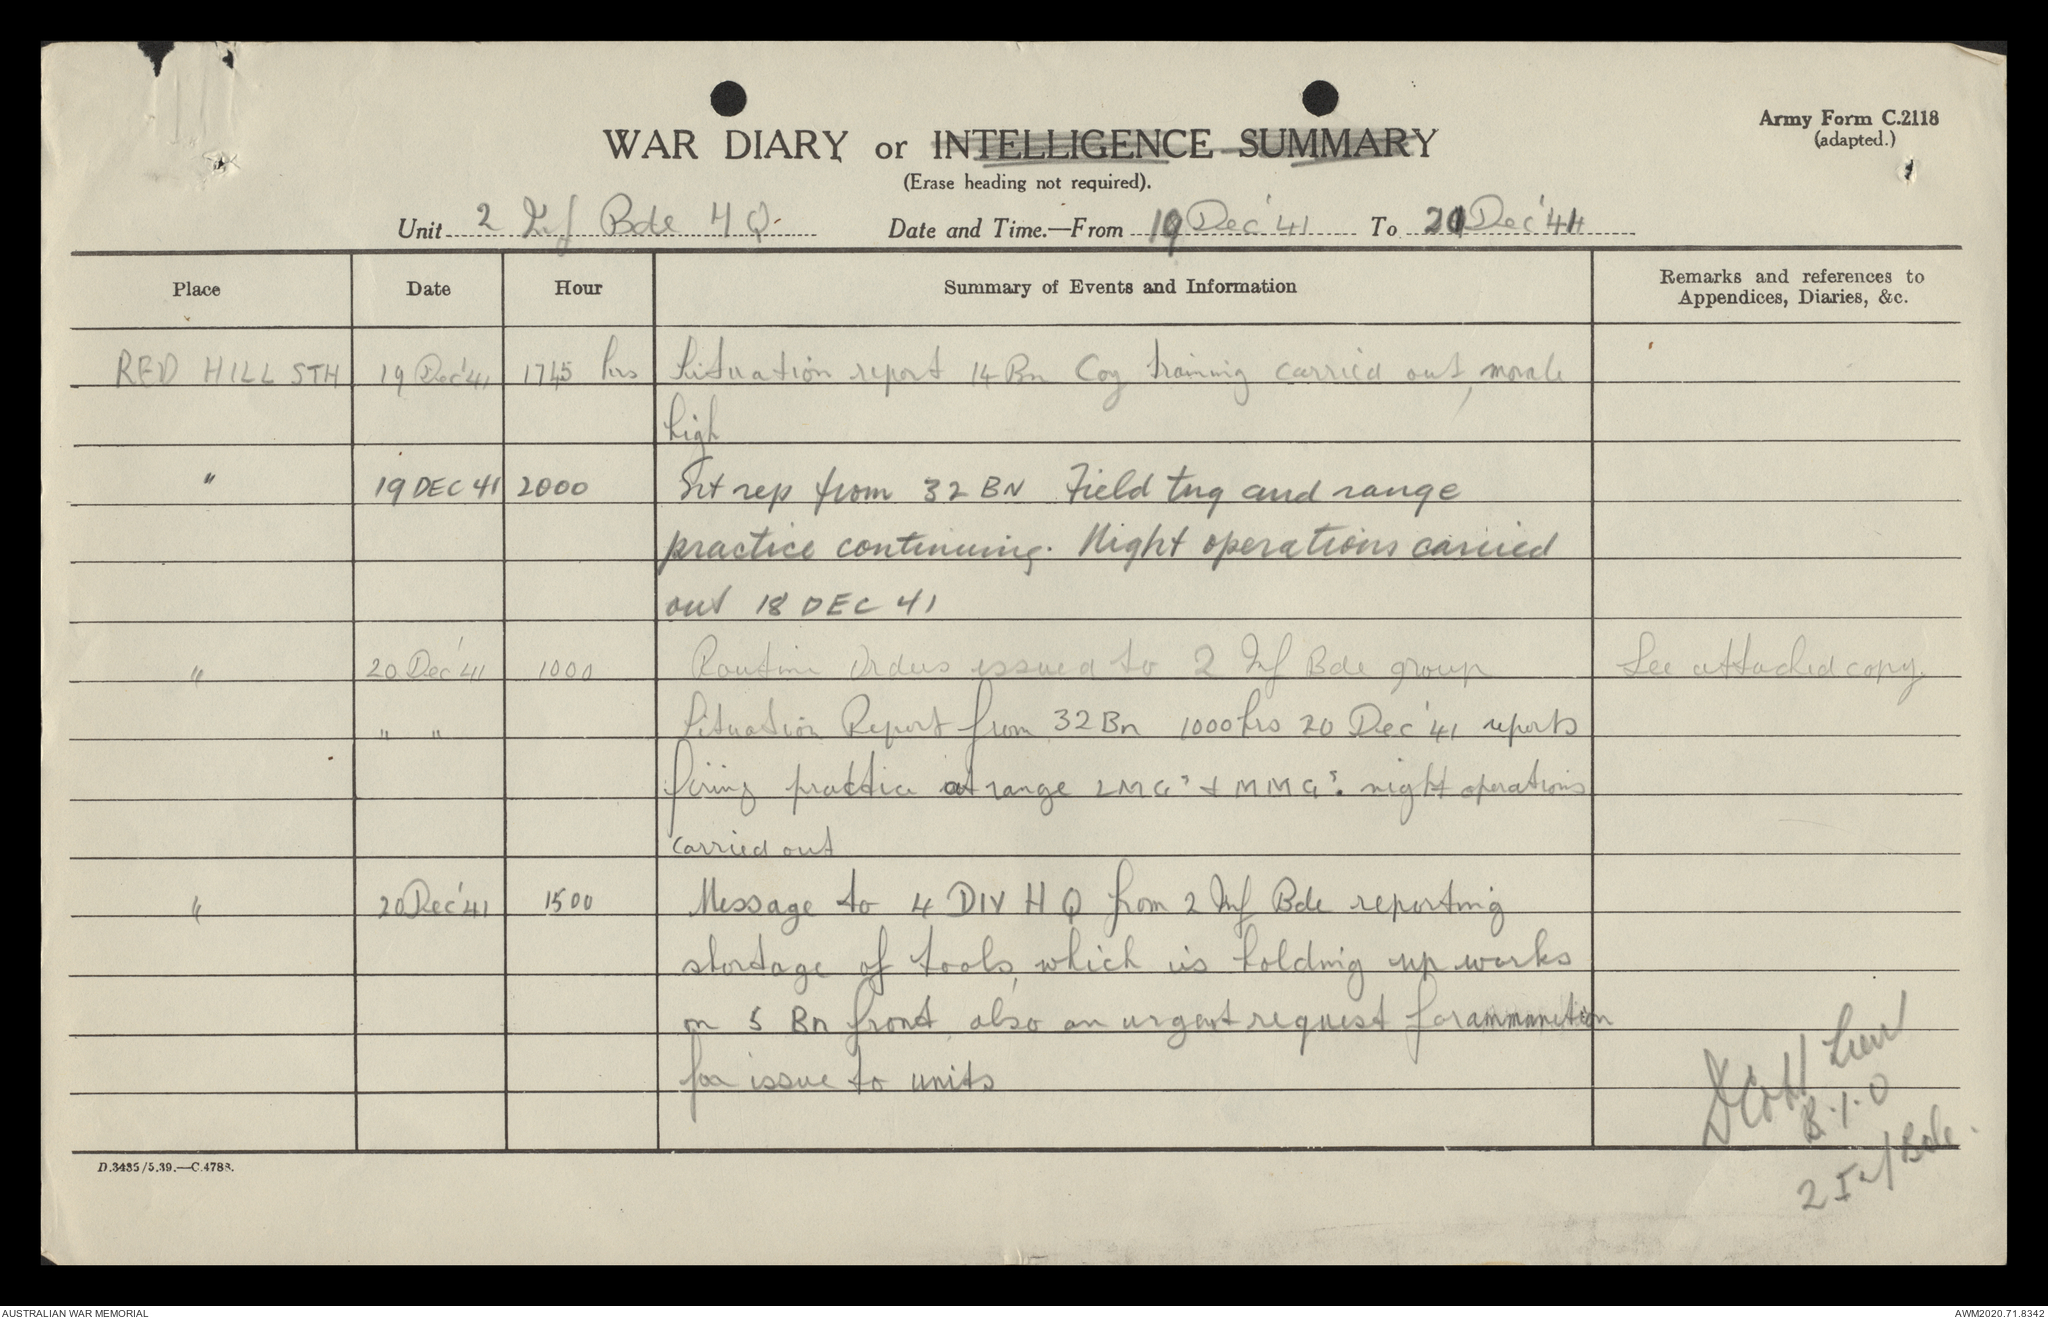 Army Form C.2118
(adapted.)
WAR DIARY or INTELLIGENCE SUMMARY
(Erase heading not required).
Unit 2 Inf Bde HQ. Date and Time.—From 19 Dec '41 To 20 Dec '41
Place Date Hour Summary of Events and Information Remarks and references to
Appendices, Diaries, &c.
RED HILL STH 19 Dec '41 1745 hrs Situation report 14 Bn Coy training carried out, morale
high
" 19 DEC 41 2000 Sit rep from 32 BN Field tng and range
practice continuing. Night operations carried
out 18 DEC 41
" 20 Dec '41 1000 Routine Orders issued to 2 Inf Bde group See attached copy.
" " Situation Report from 32 Bn 1000 hrs 20 Dec '41 reports
firing practice at range LMG's + MMG's. night operations
carried out
" 20 Dec '41 1500 Message to 4 DIV HQ from 2 Inf Bde reporting
shortage of tools, which is holding up works
on 5 Bn front, also an urgent request for ammunition
for issue to units
Lieut
B.I.O
2 Inf Bde.
D.3435/5.39.—C.4783.
AUSTRALIAN WAR MEMORIAL AWM2020.71.8342